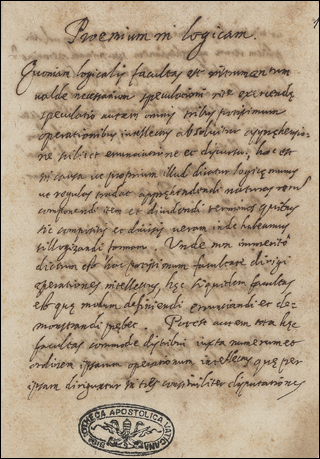 Proemium in logicam.
Quoniam logicalis facultas est instrumentum
valde necessarium speculationi rite exercendę
speculatio autem omnis tribus potissimum
operationibus intellectus absolvitur apprehensio
ne scilicet enunciatione et discursu, hoc est
ut proprium illud dicatur logicę munus
ut regulas tradat apprehendendi naturas rerum
componendi item et dividendi terminos quibus
sic compositis et divisis veram inde habeamus
sillogizandi formam. Unde non immerito
dictum est hac potissimum facultate dirigi
operationes intellectus, hęc siquidem facultas
est quę modum definiendi enunciandi et de
monstrandi prebet. Potest autem tota hęc
facultas commode distribui iuxta numerum et
ordinem ipsarum operationum intellectus quę per
ipsam diriguntur in tres consimiliter disputationes
BIBLIOTHECA APOSTOLICA VATICANA